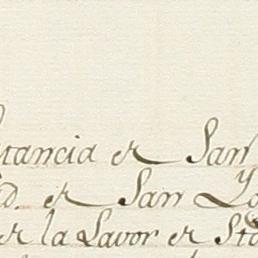 stancia de San
d. de San Lo
de la Lavor de Sta